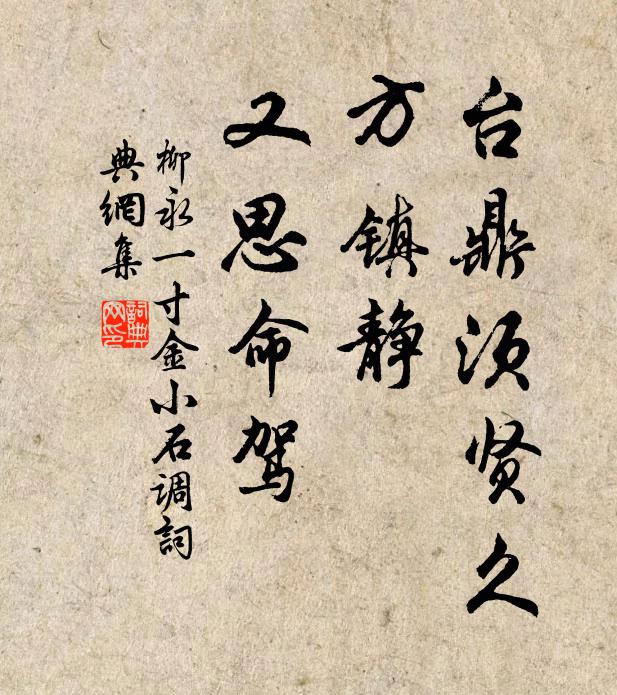 台鼎须贤久
方镇静
又思命驾
柳永一寸金小石调詞
典網集
詞典
网印